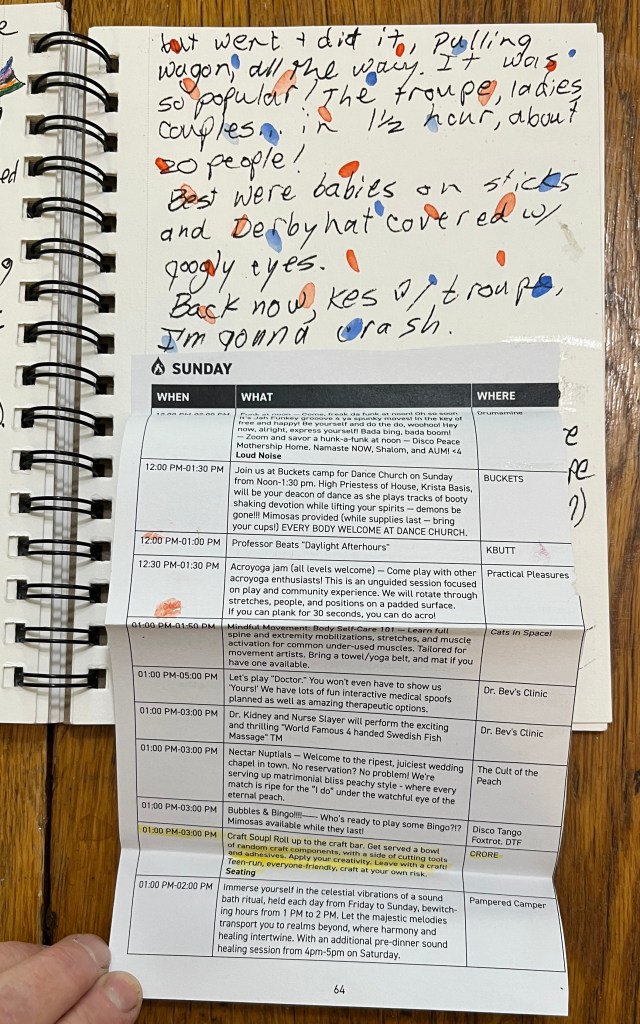 but went + did it, pulling
wagon, all the way. It was
so popular! The troupe, ladies
couples... in 1 1/2 hour, about
20 people!
Best were babies on sticks
and Derby hat covered w/
googly eyes.
Back now, Kes w/ troupe,
I'm gonna crash.
SUNDAY
WHEN WHAT WHERE
Drumamine
free and happy! Be yourself and do the do, woohoo! Hey
now, alright, express yourself! Bada bing, bada boom!
— Zoom and savor a hunk-a-funk at noon — Disco Peace
Mothership Home. Namaste NOW, Shalom, and AUM! <4
Loud Noise
12:00 PM-01:30 PM
Join us at Buckets camp for Dance Church on Sunday
from Noon-1:30 pm. High Priestess of House, Krista Basis,
will be your deacon of dance as she plays tracks of booty
shaking devotion while lifting your spirits — demons be
gone!!! Mimosas provided (while supplies last — bring
your cups!) EVERY BODY WELCOME AT DANCE CHURCH.
BUCKETS
12:00 PM-01:00 PM
Professor Beats "Daylight Afterhours"
KBUTT
12:30 PM-01:30 PM
Acroyoga jam (all levels welcome) — Come play with other
acroyoga enthusiasts! This is an unguided session focused
on play and community experience. We will rotate through
stretches, people, and positions on a padded surface.
If you can plank for 30 seconds, you can do acro!
Practical Pleasures
01:00 PM-01:50 PM
Mindful Movement: Body Self-Care 101 — Learn full
spine and extremity mobilizations, stretches, and muscle
activation for common under-used muscles. Tailored for
movement artists. Bring a towel/yoga belt, and mat if you
have one available.
Cats in Space!
01:00 PM-05:00 PM
Let's play "Doctor." You won't even have to show us
'Yours!' We have lots of fun interactive medical spoofs
planned as well as amazing therapeutic options.
Dr. Bev's Clinic
01:00 PM-03:00 PM
Dr. Kidney and Nurse Slayer will perform the exciting
and thrilling "World Famous 4 handed Swedish Fish
Massage" TM
Dr. Bev's Clinic
01:00 PM-03:00 PM
Nectar Nuptials — Welcome to the ripest, juiciest wedding
chapel in town. No reservation? No problem! We're
serving up matrimonial bliss peachy style - where every
match is ripe for the "I do" under the watchful eye of the
eternal peach.
The Cult of the
Peach
01:00 PM-03:00 PM
Bubbles & Bingo!!!!—— Who's ready to play some Bingo?!?
Mimosas available while they last!
Disco Tango
Foxtrot. DTF
01:00 PM-03:00 PM
Craft Soup! Roll up to the craft bar. Get served a bowl
of random craft components, with a side of cutting tools
and adhesives. Apply your creativity. Leave with a craft!
Teen-run, everyone-friendly, craft at your own risk.
Seating
CRORE
01:00 PM-02:00 PM
Immerse yourself in the celestial vibrations of a sound
bath ritual, held each day from Friday to Sunday, bewitch-
ing hours from 1 PM to 2 PM. Let the majestic melodies
transport you to realms beyond, where harmony and
healing intertwine. With an additional pre-dinner sound
healing session from 4pm-5pm on Saturday.
Pampered Camper
64